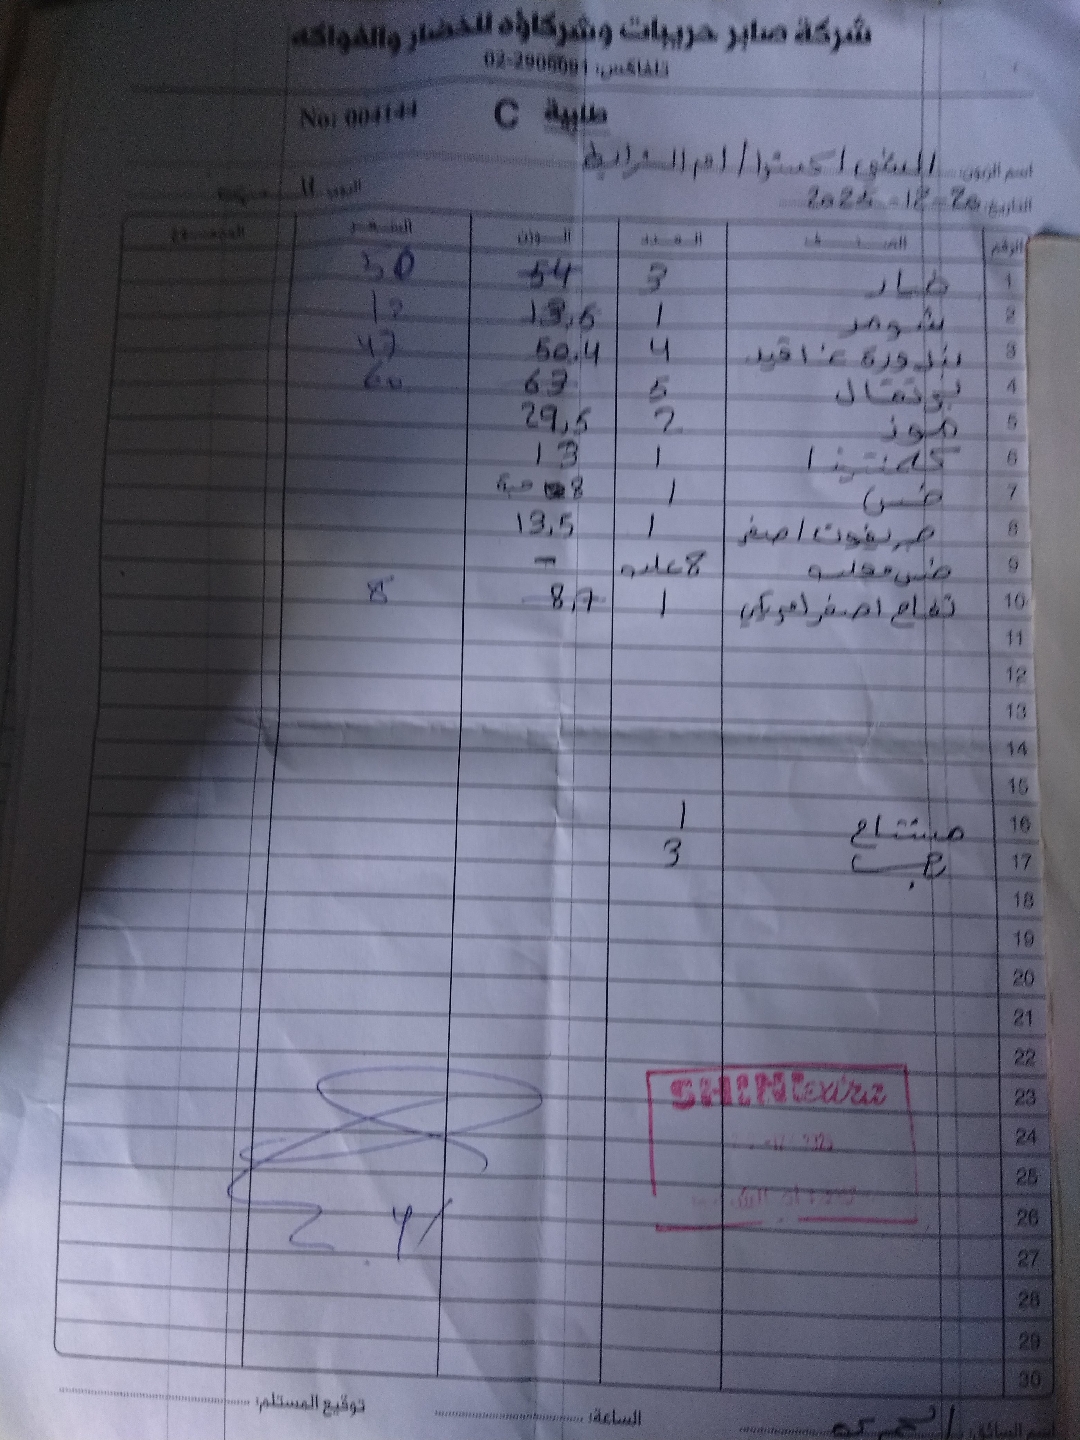 شركة صابر حريبات وشركاؤه للخضار والفواكه
تلفاكس: 02-2906091
طلبية C No: 004144
اسم الزبون: الشني اكسترا / ام الشرايط
التاريخ: 2025-12-20 اليوم:
الرقم الصنف العدد الوزن السعر المجموع
1 خيار 3 54 50
2 شومر 1 13,5 12
3 بندورة عناقيد 4 50.4 47
4 برتقال 5 63 60
5 موز 2 29,5
6 كلمنتينا 1 13
7 خس 1 8 حبة
8 جريفوت اصفر 1 13,5
9 خس معلب 8 علب -
10 تفاح اصفر امريكي 1 8,7 8
11
12
13
14
15
16 مشتاح 1
17 3
18
19
20
21
22
23 SHINI extra
24
25
26
27
28
29
30
اسم السائق: الساعة: توقيع المستلم: